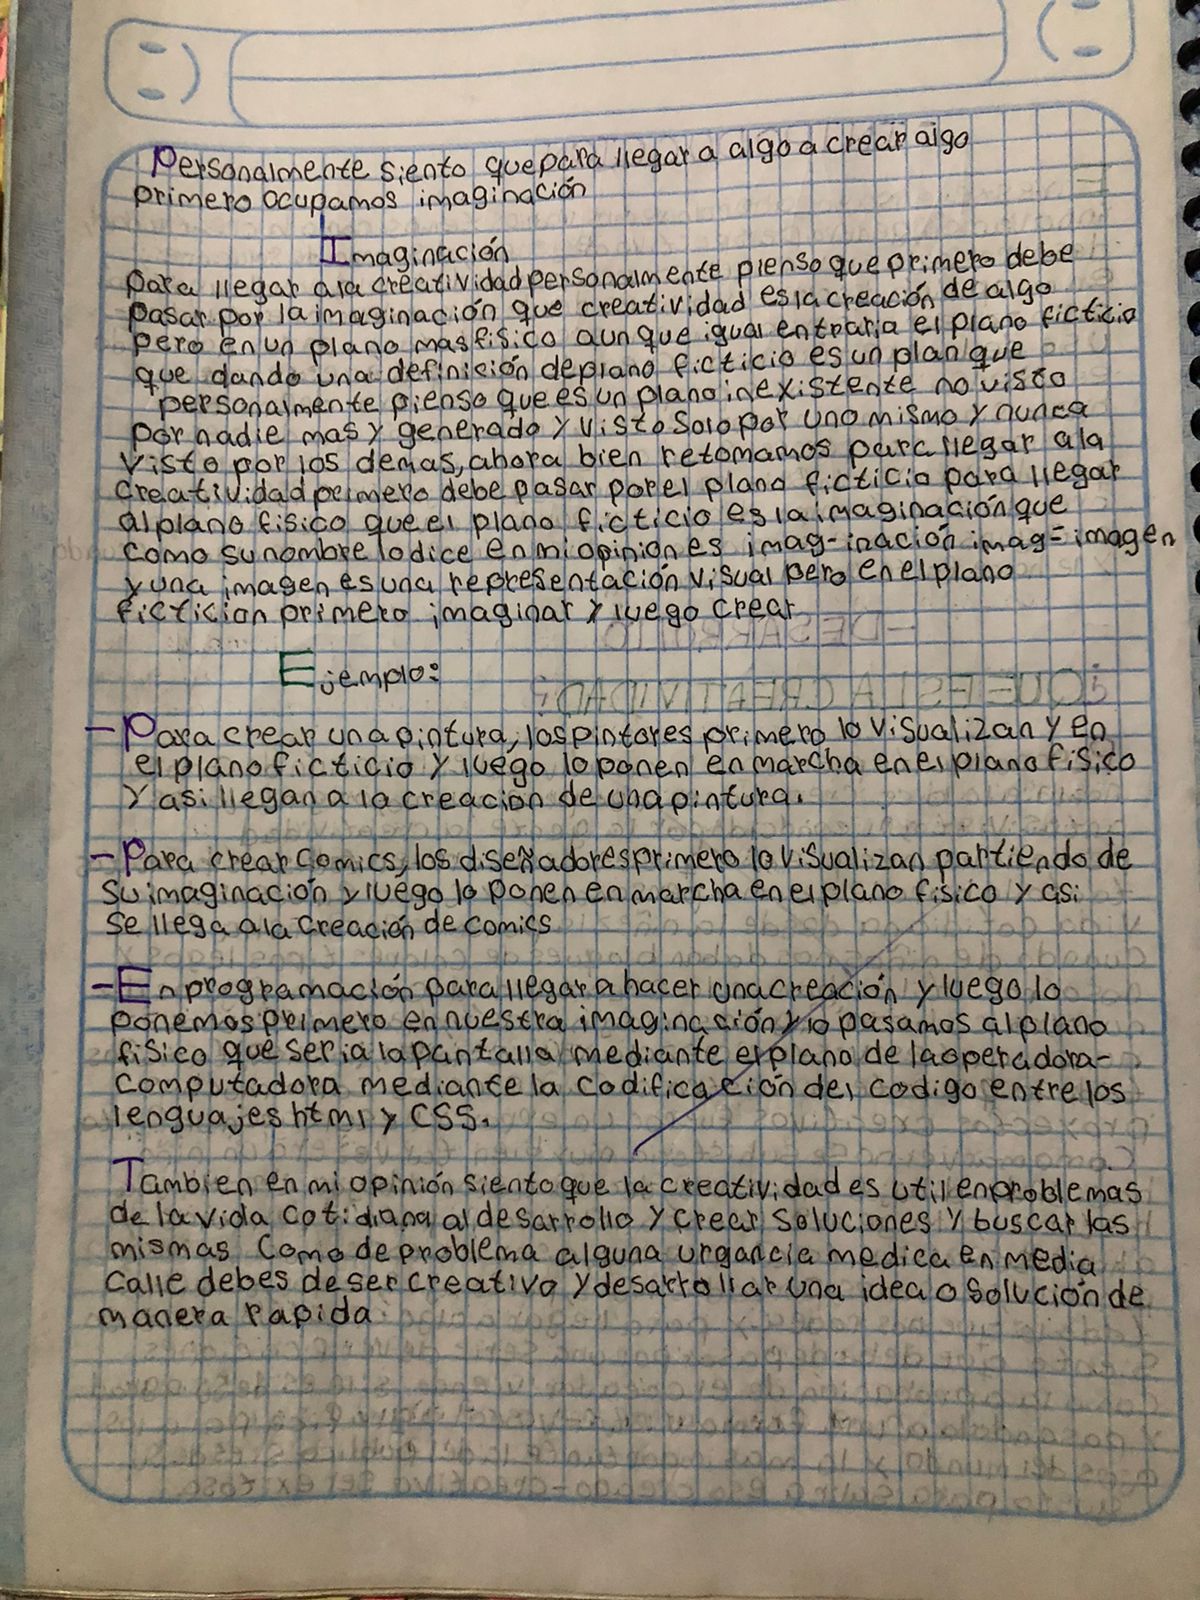 Personalmente siento que para llegar a algo a crear algo
primero ocupamos imaginación
Imaginación
para llegar a la creatividad personalmente pienso que primero debe
pasar por la imaginación que creatividad es la creación de algo
pero en un plano mas fisico aunque igual entraria el plano ficticio
que dando una definición de plano ficticio es un plan que
personalmente pienso que es un plano inexistente no visto
por nadie mas y generado y visto solo por uno mismo y nunca
visto por los demas, ahora bien retomamos para llegar a la
creatividad primero debe pasar por el plano ficticio para llegar
al plano fisico que el plano ficticio es la imaginación que
como su nombre lo dice en mi opinion es imag-inación imag=imagen
y una imagen es una representación visual pero en el plano
ficticion primero imaginar y luego crear
Ejemplo:
-Para crear una pintura, los pintores primero lo visualizan y en
el plano ficticio y luego lo ponen en marcha en el plano fisico
y asi llegan a la creación de una pintura.
-Para crear comics, los diseñadores primero lo visualizan partiendo de
su imaginación y luego lo ponen en marcha en el plano fisico y asi
se llega a la creación de comics
-En programación para llegar a hacer una creación y luego lo
ponemos primero en nuestra imaginación y lo pasamos al plano
fisico que seria la pantalla mediante el plano de la operadora-
computadora mediante la codificación del codigo entre los
lenguajes html y CSS.
Tambien en mi opinión siento que la creatividad es util en problemas
de la vida cotidiana al desarrollo y crear soluciones y buscar las
mismas como de problema alguna urgancia medica en media
calle debes de ser creativo y desarrollar una idea o solución de
manera rapida